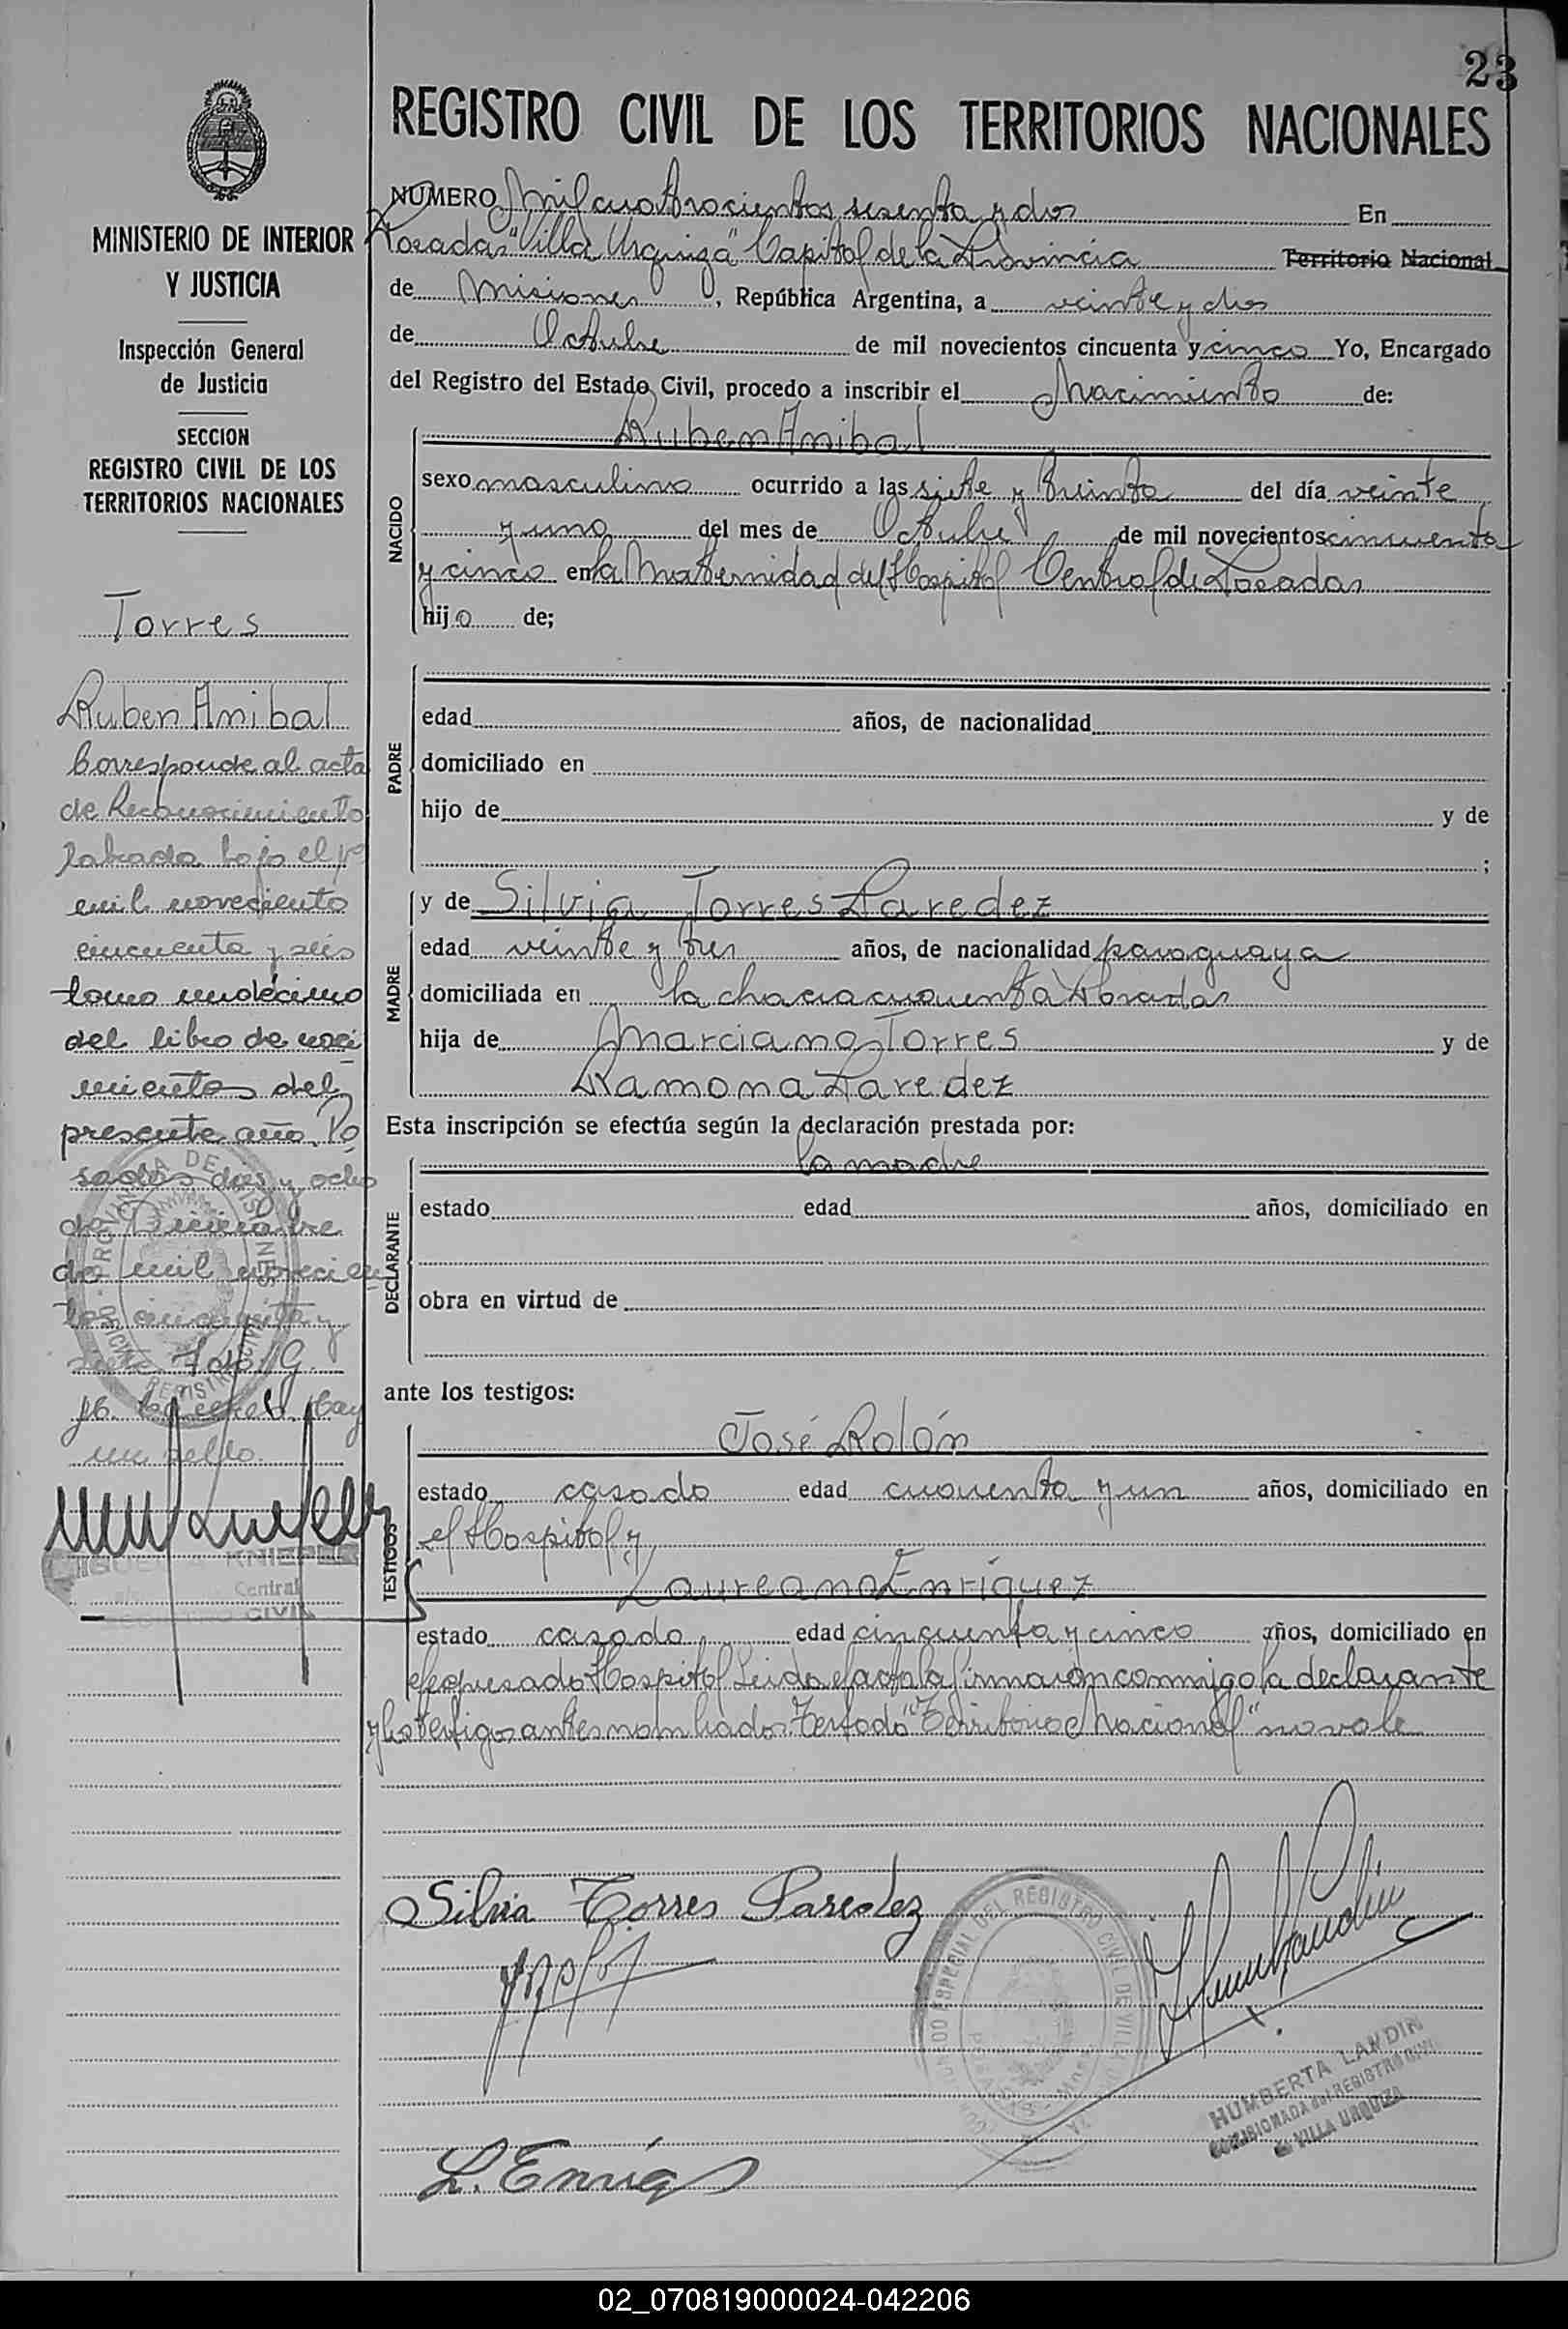 23
REGISTRO CIVIL DE LOS TERRITORIOS NACIONALES
MINISTERIO DE INTERIOR
Y JUSTICIA
Inspección General
de Justicia
SECCION
REGISTRO CIVIL DE LOS
TERRITORIOS NACIONALES
Torres
Ruben Anibal
Corresponde al acta
de Reconocimiento
labrada bajo el nº
mil noveciento
cincuenta y seis
tomo undécimo
del libro de naci
mientos del
presente año. Po
sadas dies y ocho
de Diciembre
de mil novecien
tos cincuenta y
siete
Hay
un sello.
Central
CIVIL
NUMERO Mil cuatrocientos sesenta y dos En
Posadas "Villa Urquiza" Capital de la Provincia Territorio Nacional
de Misiones, República Argentina, a veinte y dos
de Octubre de mil novecientos cincuenta y cinco Yo, Encargado
del Registro del Estado Civil, procedo a inscribir el Nacimiento de:
NACIDO
Ruben Anibal
sexo masculino ocurrido a las siete y treinta del día veinte
y uno del mes de Octubre de mil novecientos cincuenta
y cinco en la Maternidad del Hospital Central de Posadas
hijo de;
PADRE
edad años, de nacionalidad
domiciliado en
hijo de y de
;
MADRE
y de Silvia Torres Paredez
edad veinte y tres años, de nacionalidad paraguaya
domiciliada en la chacra cuarenta Posadas
hija de Marciano Torres y de
Ramona Paredez
Esta inscripción se efectúa según la declaración prestada por:
DECLARANTE
la madre
estado edad años, domiciliado en
obra en virtud de
ante los testigos:
TESTIGOS
José Rolón
estado casado edad cuarenta y un años, domiciliado en
el Hospital y
Laureano Enríquez
estado casado edad cincuenta y cinco años, domiciliado en
el expresado Hospital Leida el acta la firmaron conmigo la declarante
y los testigos antes nombrados Testado "Territorio Nacional" no vale
Silvia Torres Paredez
L. Enriq
HUMBERTA LANDIN
COMISIONADA del REGISTRO CIVIL
de VILLA URQUIZA
02_070819000024-042206